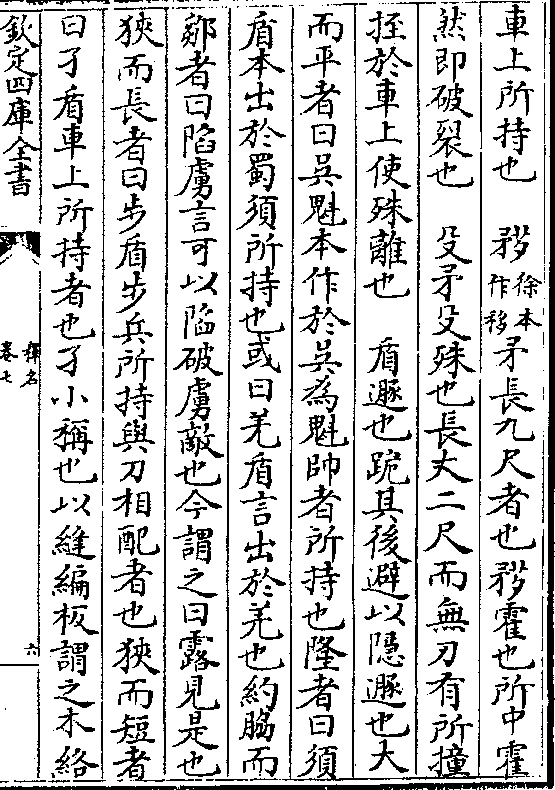 車上所持也　矟徐本作矟矛長九尺者也矟霍也所中霍
然即破裂也　殳矛殳殊也長丈二尺而無刃有所撞
挃於車上使殊離也　盾遯也跪其後避以隱遯也大
而平者曰吳魁本作於吳為魁帥者所持也隆者曰須
盾本出於蜀須所持也或曰羌盾言出於羌也約脇而
鄒者曰陷虜言可以陷破虜敵也今謂之曰露見是也
狹而長者曰步盾步兵所持與刀相配者也狹而短者
曰孑盾車上所持者也孑小稱也以縫編板謂之木絡
欽定四庫全書
釋名
卷七
六